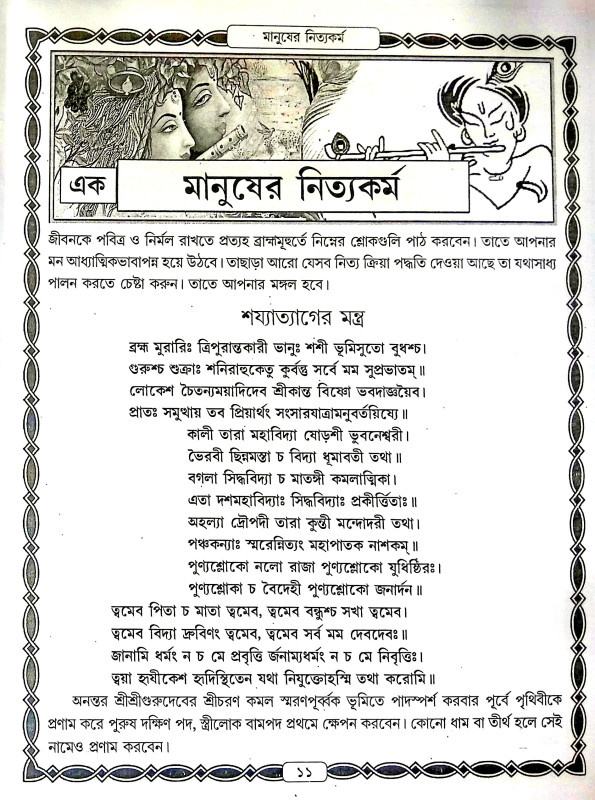 মানুষের নিত্যকর্ম
এক
মানুষের নিত্যকর্ম
জীবনকে পবিত্র ও নির্মল রাখতে প্রত্যহ ব্রাহ্মমূহুর্তে নিম্নের শ্লোকগুলি পাঠ করবেন। তাতে আপনার
মন আধ্যাত্মিকভাবাপন্ন হয়ে উঠবে। তাছাড়া আরো যেসব নিত্য ক্রিয়া পদ্ধতি দেওয়া আছে তা যথাসাধ্য
পালন করতে চেষ্টা করুন। তাতে আপনার মঙ্গল হবে।
শয্যাত্যাগের মন্ত্র
ব্রহ্ম মুরারিঃ ত্রিপুরান্তকারী ভানুঃ শশী ভূমিসুতো বুধশ্চ।
গুরুশ্চ শুক্রাঃ শনিরাহুকেতু কুর্বন্তু সর্বে মম সুপ্রভাতম্॥
লোকেশ চৈতন্যময়াদিদেব শ্রীকান্ত বিষ্ণো ভবদাজ্ঞয়ৈব।
প্রাতঃ সমুত্থায় তব প্রিয়ার্থং সংসারযাত্রামনুবর্তয়িষ্যে॥
কালী তারা মহাবিদ্যা ষোড়শী ভুবনেশ্বরী।
ভৈরবী ছিন্নমস্তা চ বিদ্যা ধূমাবতী তথা॥
বগলা সিদ্ধবিদ্যা চ মাতঙ্গী কমলাত্মিকা।
এতা দশমহাবিদ্যাঃ সিদ্ধবিদ্যাঃ প্রকীর্ত্তিতাঃ॥
অহল্যা দ্রৌপদী তারা কুন্তী মন্দোদরী তথা।
পঞ্চকন্যাঃ স্মরেন্নিত্যং মহাপাতক নাশকম্॥
পুণ্যশ্লোকো নলো রাজা পুণ্যশ্লোকো যুধিষ্ঠিরঃ।
পুণ্যশ্লোকা চ বৈদেহী পুণ্যশ্লোকো জনার্দন॥
ত্বমেব পিতা চ মাতা ত্বমেব, ত্বমেব বন্ধুশ্চ সখা ত্বমেব।
ত্বমেব বিদ্যা দ্রুবিণং ত্বমেব, ত্বমেব সর্ব মম দেবদেবঃ॥
জানামি ধর্মং ন চ মে প্রবৃত্তি র্জনাম্যধর্মং ন চ মে নিবৃত্তিঃ।
ত্বয়া হৃষীকেশ হৃদিস্থিতেন যথা নিযুক্তোহস্মি তথা করোমি॥
অনন্তর শ্রীশ্রীগুরুদেবের শ্রীচরণ কমল স্মরণপূর্ব্বক ভূমিতে পাদস্পর্শ করবার পূর্বে পৃথিবীকে
প্রণাম করে পুরুষ দক্ষিণ পদ, স্ত্রীলোক বামপদ প্রথমে ক্ষেপন করবেন। কোনো ধাম বা তীর্থ হলে সেই
নামেও প্রণাম করবেন।
১১